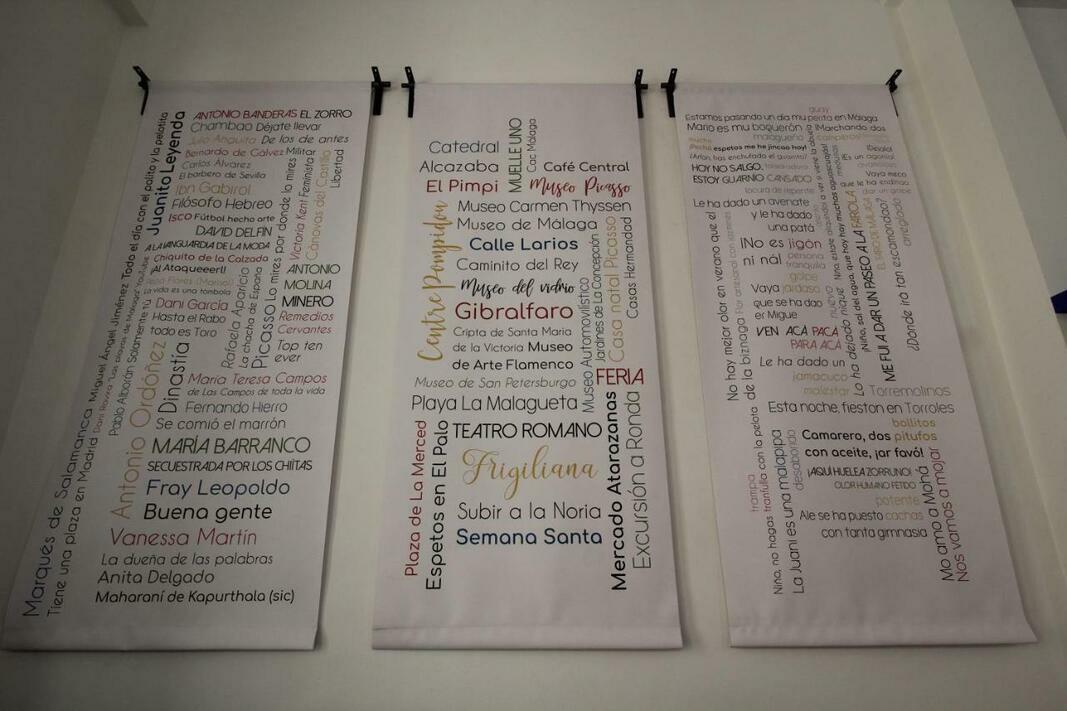 ANTONIO BANDERAS EL ZORRO
Chambao Déjate llevar
Julio Anguita De los de antes
Bernardo de Gálvez Militar
Carlos Álvarez
El barbero de Sevilla
Ibn Gabirol
Filósofo Hebreo
Isco Fútbol hecho arte
DAVID DELFÍN
A LA VANGUARDIA DE LA MODA
Chiquito de la Calzada
Al Ataqueeerl!
Pepa Flores (Marisol)
La vida es una tómbola
Dani García
Hasta el Rabo
todo es Toro
Juanito Leyenda
Todo el día con el palito y la pelotita
Miguel Ángel Jiménez
Marqués de Salamanca
Tiene una plaza en Madrid
Dani Rovira
Pablo Alborán Solamente tú
Antonio Ordóñez
Dinastía
Rafaela Aparicio
La chacha de España
Picasso Lo mires por donde lo mires
Victoria Kent Feminista
Cánovas del Castillo
Libertad
ANTONIO
MOLINA
MINERO
Remedios
Cervantes
Top ten
ever
María Teresa Campos
de Las Campos de toda la vida
Fernando Hierro
Se comió el marrón
MARÍA BARRANCO
SECUESTRADA POR LOS CHIÍTAS
Fray Leopoldo
Buena gente
Vanessa Martín
La dueña de las palabras
Anita Delgado
Maharaní de Kapurthala (sic)
Catedral
MUELLE UNO
Cac Málaga
Alcazaba
Café Central
El Pimpi
Museo Picasso
Museo Carmen Thyssen
Museo de Málaga
Centre Pompidou
Calle Larios
Caminito del Rey
Museo del vidrio
Gibralfaro
Cripta de Santa María
de la Victoria Museo
de Arte Flamenco
Museo Automovilístico
Jardines de La Concepción
Casa natal Picasso
Casas Hermandad
Museo de San Petersburgo
FERIA
Playa La Malagueta
Plaza de La Merced
Espetos en El Palo
TEATRO ROMANO
Frigiliana
Subir a la Noria
Semana Santa
Mercado Atarazanas
Excursión a Ronda
guay
Estamos pasando un día mu perita en Málaga
Mario es mu boquerón
malagueño
¡Marchando dos
mucho
¡Pechá espetos me he jincao hoy!
HOY NO SALGO,
ESTOY GUARNÍO CANSADO
locura de repente
Le ha dado un avenate
y le ha dado
una patá
¡No es jigón
persona
ni ná!
tranquila
golpe
Vaya jardaso
que se ha dao
er Migue
VEN ACÁ PACÁ
PARA ACÁ
Le ha dado un
jamacuco
malestar
No hay mejor olor en verano que el
de la biznaga
Lo ha dejado nique
nuevo
¡Niño, sal del agua, que hay muchas aguasvivas!
medusas
ME FUI A DAR UN PASEO A LA FAROLA
EL FARO DE MÁLAGA
¿Dónde irá tan escamondao?
arreglado
Torremolinos
Esta noche, fieston en Torroles
bollitos
Camarero, dos pitufos
con aceite, ¡ar favó!
¡AQUÍ HUELE A ZORRUNO!
OLOR HUMANO FÉTIDO
potente
Ale se ha puesto cachas
con tanta gimnasia
trampa
Niño, no hagas tranfulla con la pelota
La Juani es una malapipa
desaborido
Mo amo a Mohá
Nos vamos a mojar